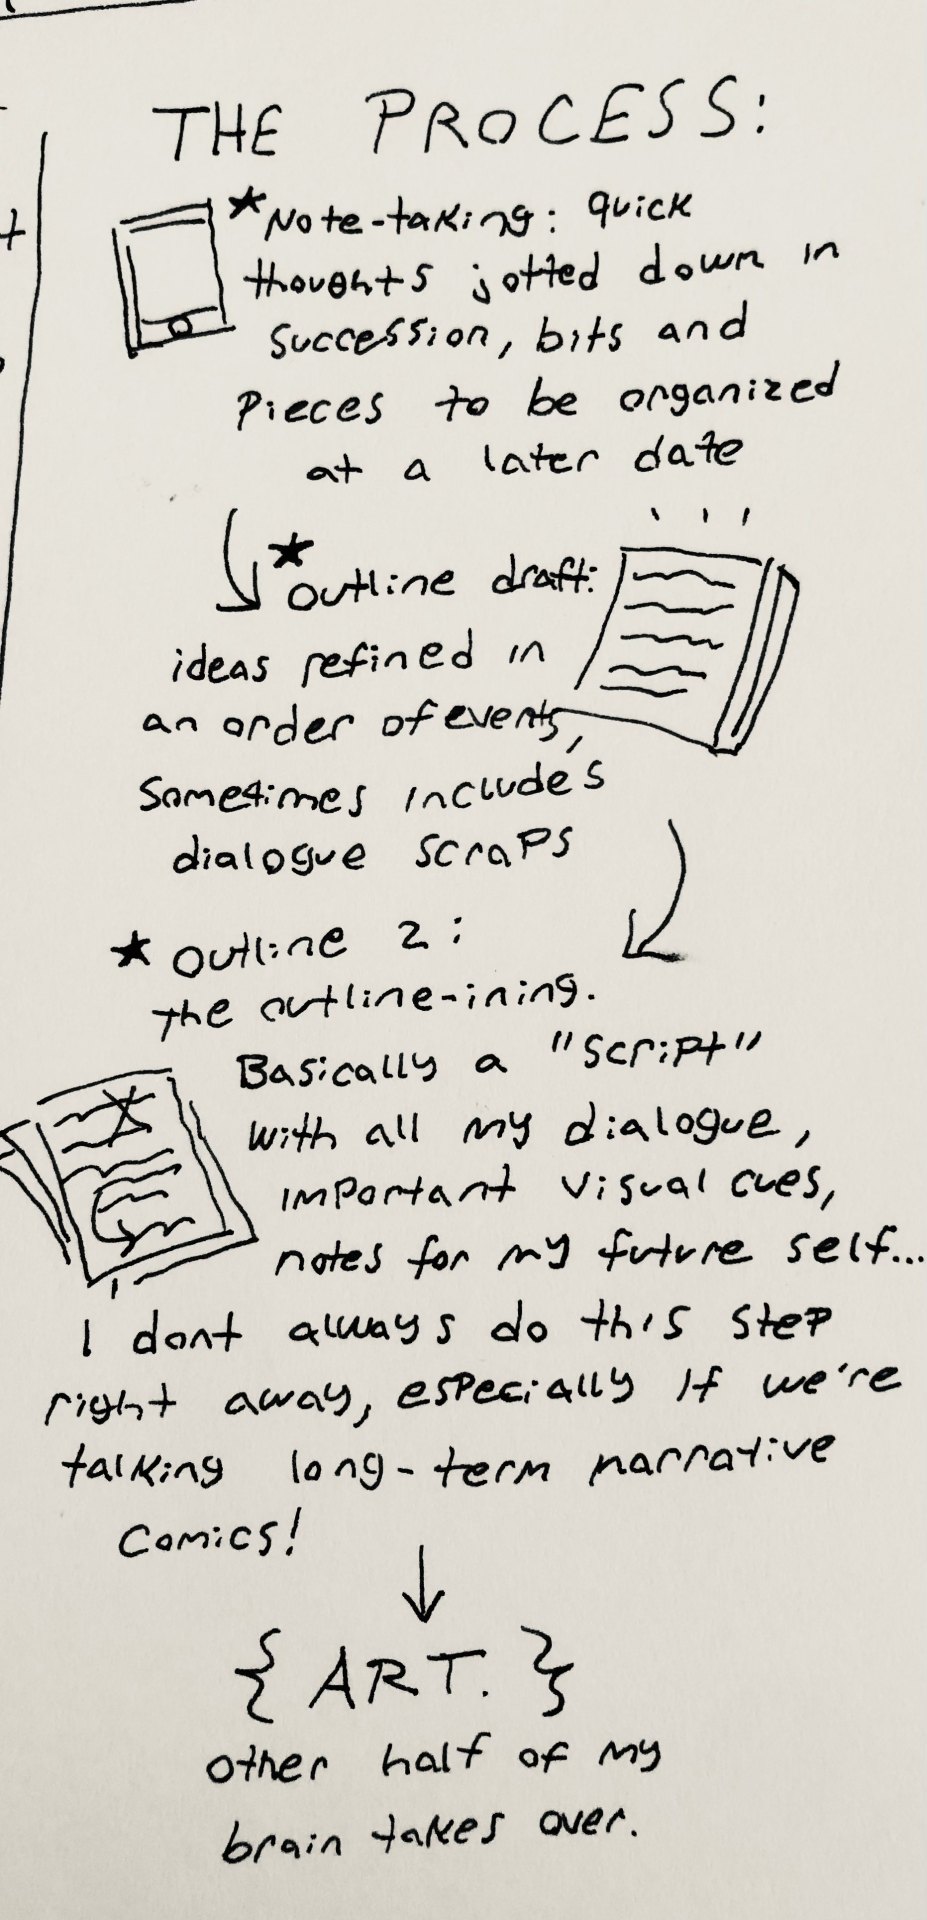 THE PROCESS:
★Note-taking: quick
thoughts jotted down in
succession, bits and
pieces to be organized
at a later date
★outline draft:
ideas refined in
an order of events,
Sometimes includes
dialogue scraps
★ outline 2:
The outline-ining.
Basically a "script"
with all my dialogue,
important visual cues,
notes for my future self...
I dont always do this step
right away, especially if we're
talking long-term narrative
Comics!
{ART.}
other half of my
brain takes over.